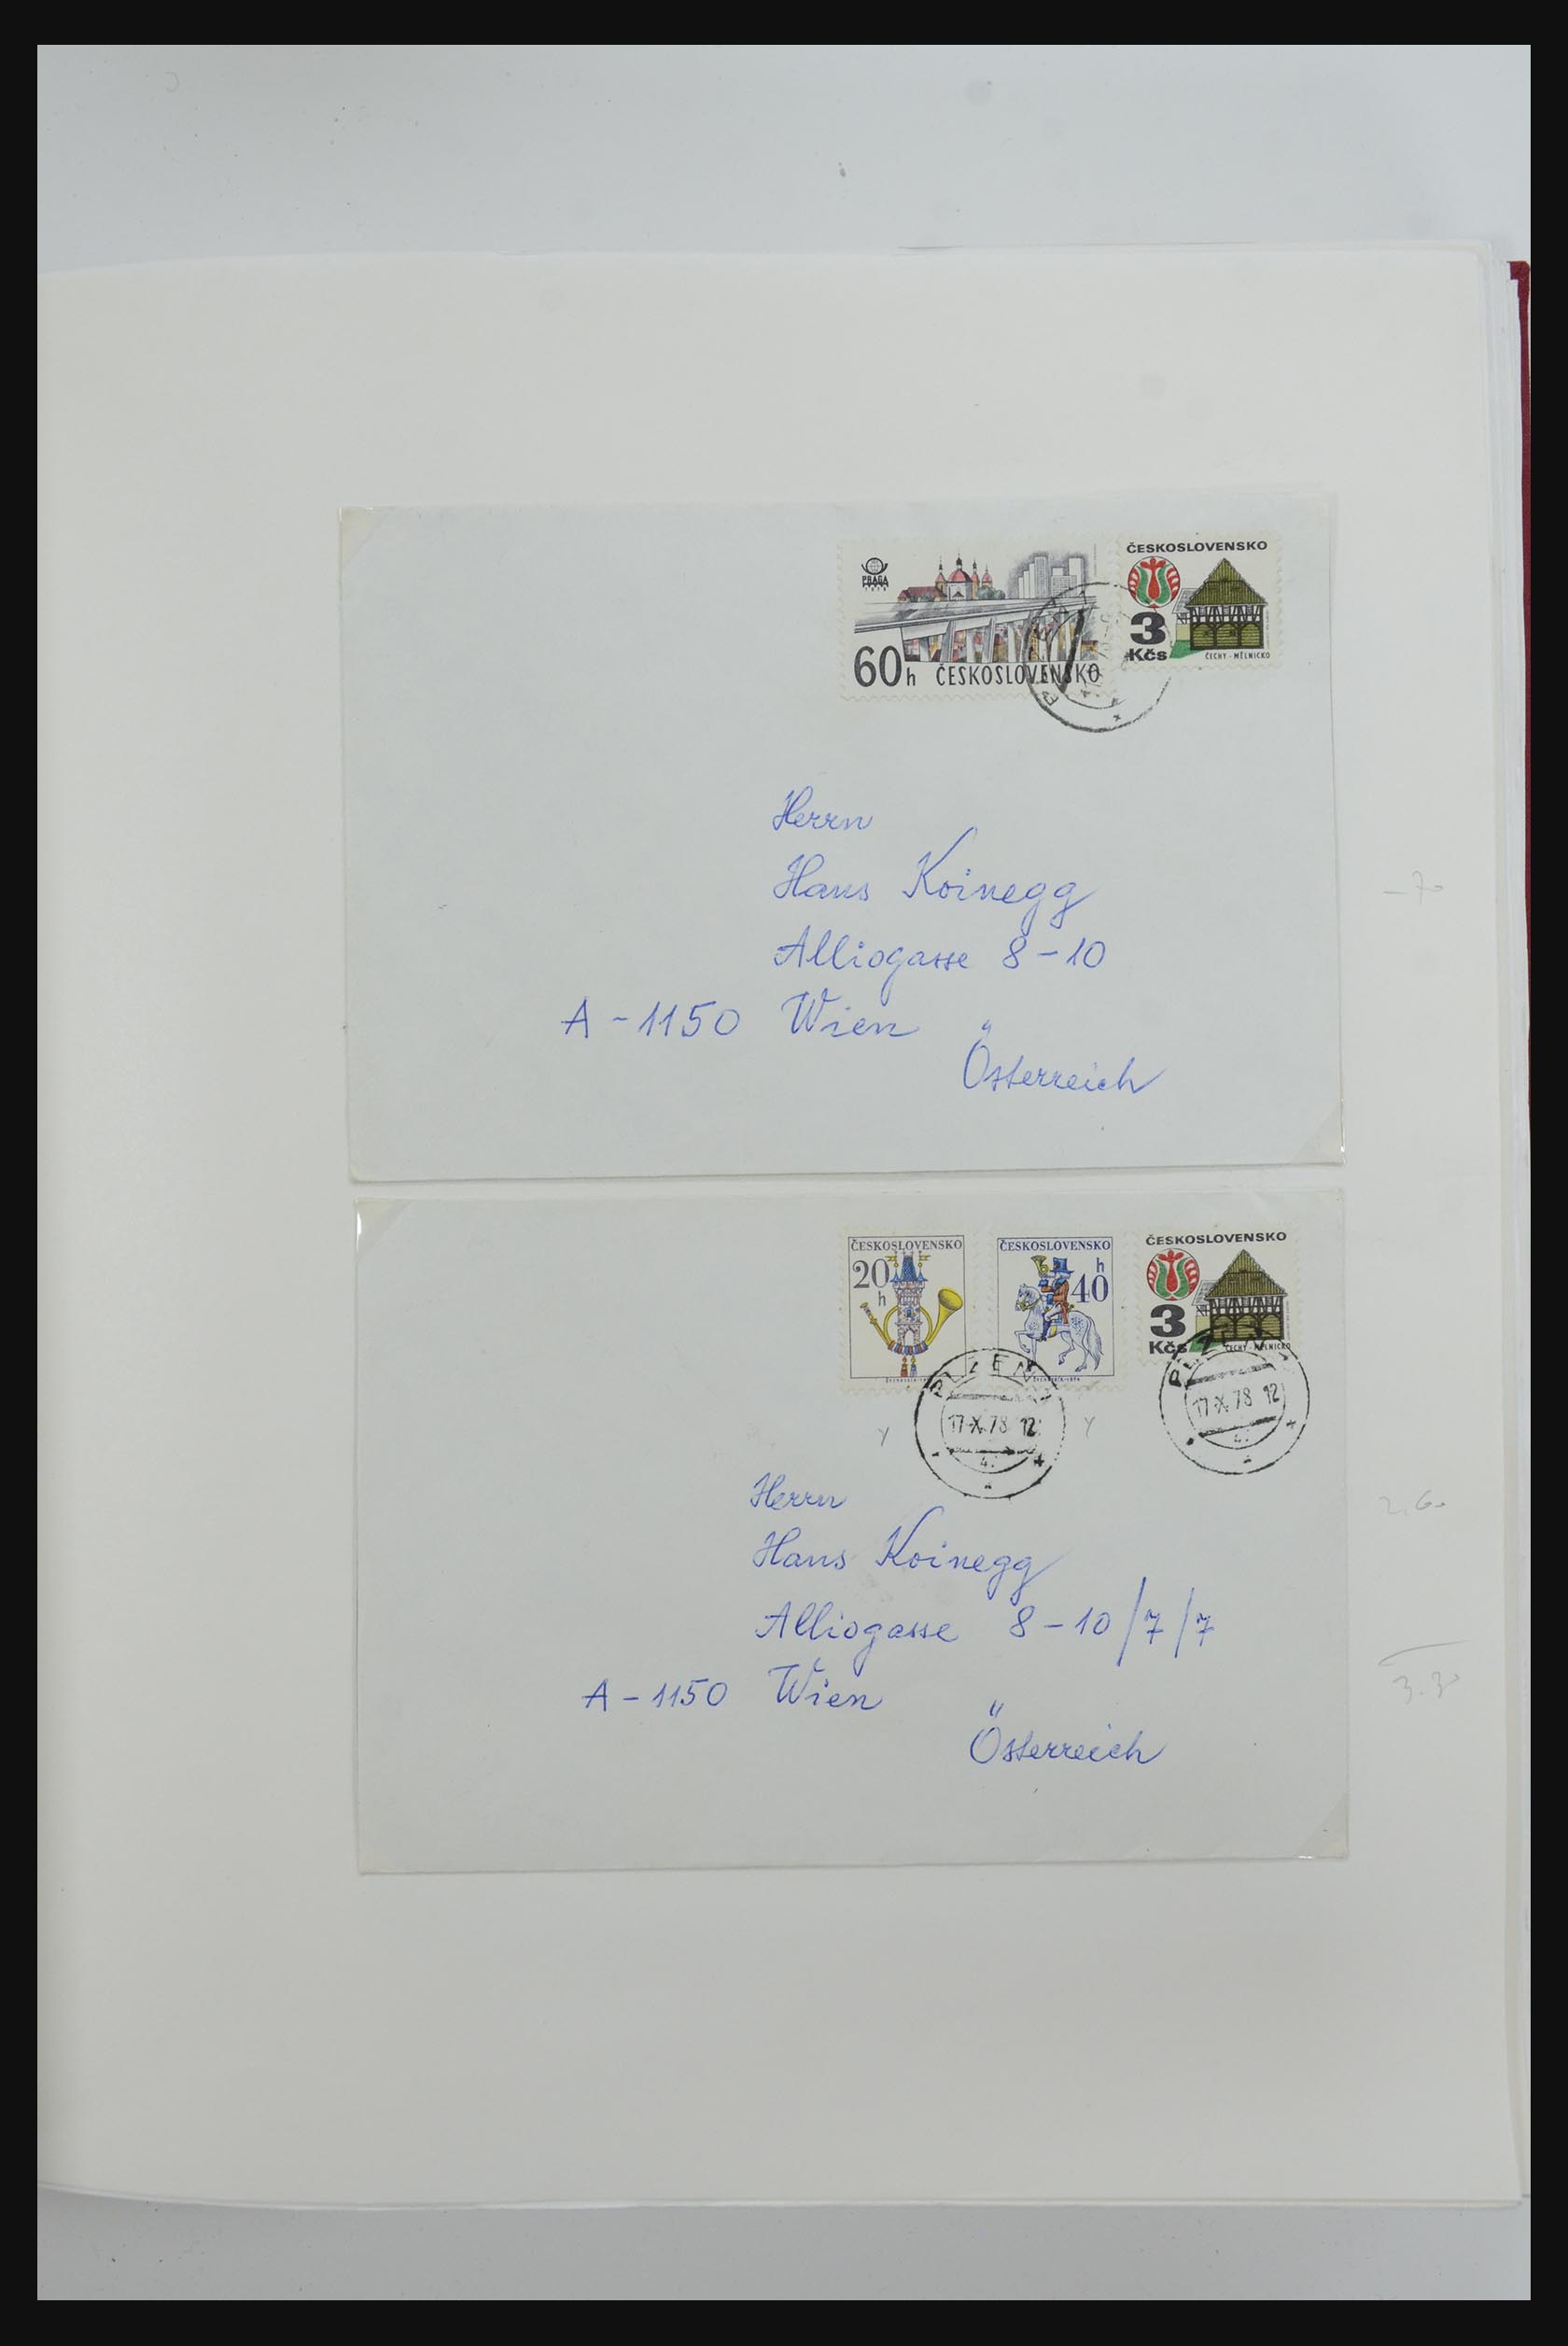 PRAGA
1978
60h ČESKOSLOVENSKO
ČESKOSLOVENSKO
3
Kčs
ČECHY - MĚLNICKO
Herrn
Hans Koinegg
Alliogasse 8-10
A-1150 Wien
Österreich
-70
ČESKOSLOVENSKO
20
h
ČESKOSLOVENSKO
h
40
ČESKOSLOVENSKO
3
Kčs
ČECHY - MĚLNICKO
PLZEŇ 1
17.X.78 12
PLZEŇ 1
17.X.78 12
Y
Y
Herrn
Hans Koinegg
Alliogasse 8-10/7/7
A-1150 Wien
Österreich
2.60
3.30